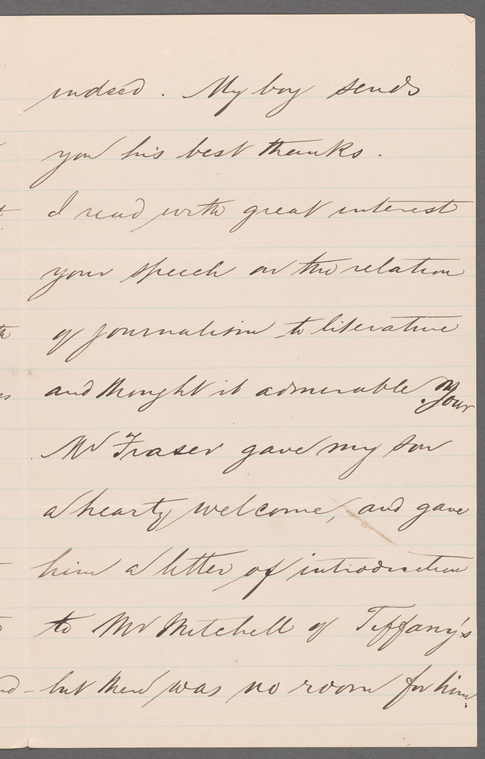 indeed. My boy sends
you his best thanks.
I read with great interest
your speech on the relation
of journalism to literature
and thought it admirable. Your
Mr Fraser gave my son
a hearty welcome, and gave
him a letter of introduction
to Mr Mitchell of Tiffany's
but there was no room for him.